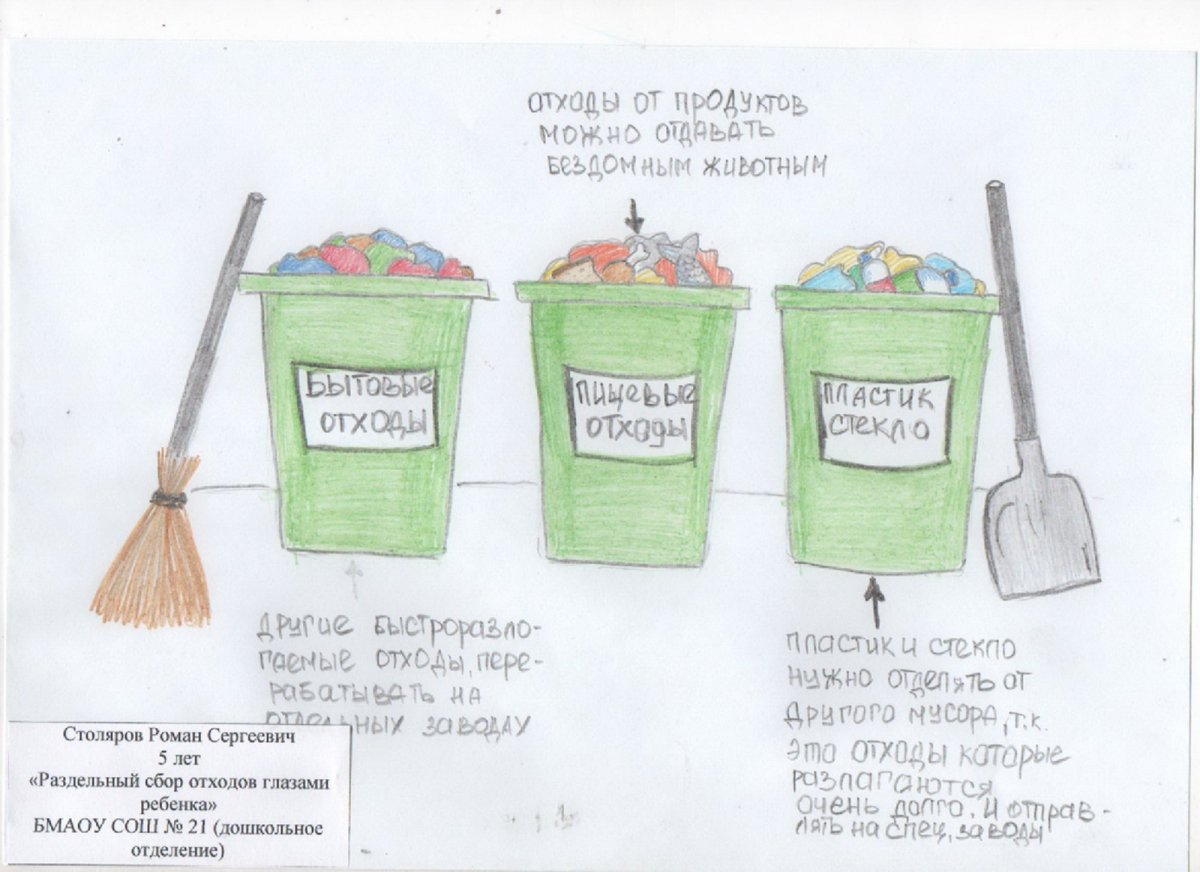 ОТХОДЫ ОТ ПРОДУКТОВ
МОЖНО ОТДАВАТЬ
БЕЗДОМНЫМ ЖИВОТНЫМ
БЫТОВЫЕ
ОТХОДЫ
ПИЩЕВЫЕ
ОТХОДЫ
ПЛАСТИК
СТЕКЛО
ДРУГИЕ БЫСТРОРАЗЛО-
ГАЕМЫЕ ОТХОДЫ, ПЕРЕ-
РАБАТЫВАТЬ НА
ОТДЕЛЬНЫХ ЗАВОДАХ
ПЛАСТИК И СТЕКЛО
НУЖНО ОТДЕЛЯТЬ ОТ
ДРУГОГО МУСОРА, Т.К.
ЭТО ОТХОДЫ КАТОРЫЕ
РАЗЛАГАЮТСЯ
ОЧЕНЬ ДОЛГО. И ОТПРАВ-
ЛЯТЬ НА СПЕЦ. ЗАВОДЫ
Столяров Роман Сергеевич
5 лет
«Раздельный сбор отходов глазами
ребенка»
БМАОУ СОШ № 21 (дошкольное
отделение)